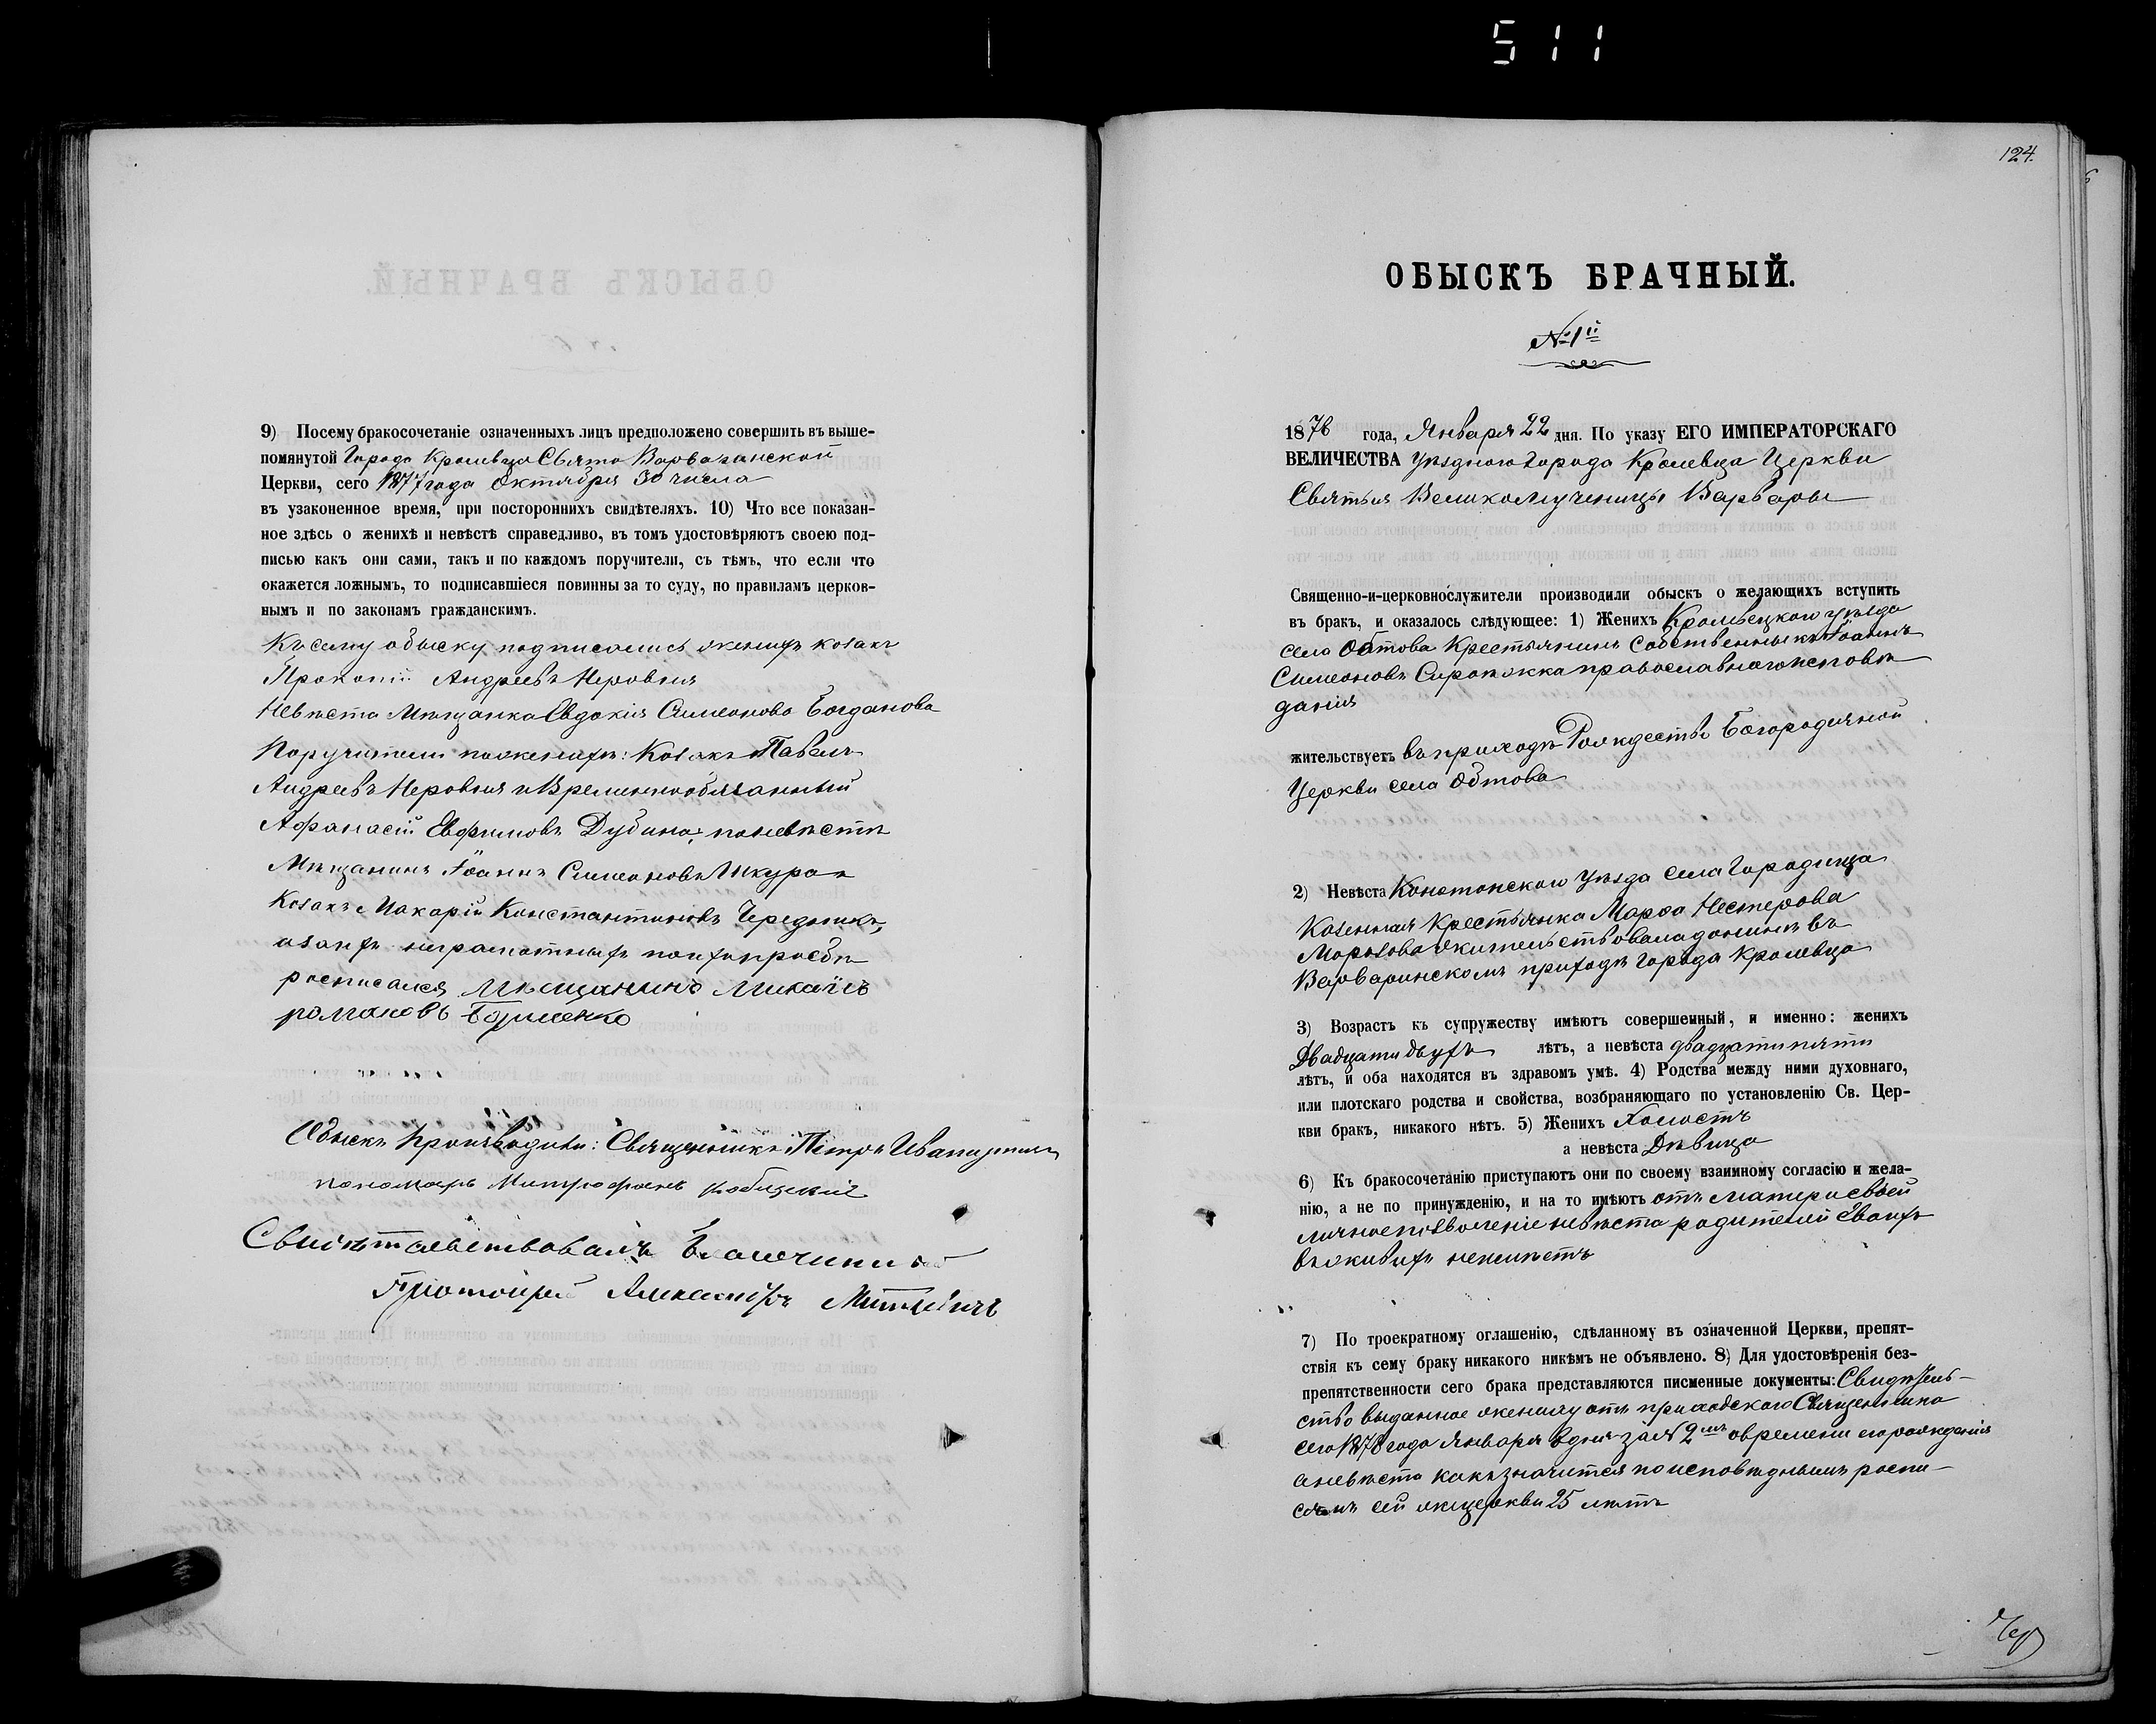 511
9) Посему бракосочетаніе означенныхъ лицъ предположено совершить въ выше-
помянутой Города Кролевца Свято Варваринской
Церкви, сего 1877 года Октября 30 числа
въ узаконенное время, при постороннихъ свидѣтеляхъ. 10) Что все показан-
ное здѣсь о женихѣ и невѣстѣ справедливо, въ томъ удостовѣряютъ своею под-
писью какъ они сами, такъ и по каждомъ поручители, съ тѣмъ, что если что
окажется ложнымъ, то подписавшіеся повинны за то суду, по правиламъ церков-
нымъ и по законамъ гражданскимъ.
Къ сему обыску подписались женихъ козакъ
Прокопій Андреевъ Неровня
Невѣста Мѣщанка Евдокія Симеонова Богданова
Поручители по женихѣ: Козакъ Павелъ
Андреевъ Неровня и Временнообязанный
Афанасій Евфимовъ Дубина; по невѣстѣ
Мѣщанинъ Іоаннъ Симеоновъ
Козакъ Макарій Константиновъ Чередникъ,
а за нихъ неграмотныхъ по ихъ просьбѣ
росписался Мѣщанинъ Михаилъ
романовъ
Обыскъ производили: Священникъ Петръ
пономарь Митрофанъ
Свидѣтельствовалъ Благочинный
Протоіерей Александръ
124.
ОБЫСКЪ БРАЧНЫЙ.
№ 1й
1878 года, Января 22 дня. По указу ЕГО ИМПЕРАТОРСКАГО
ВЕЛИЧЕСТВА уѣзднаго города Кролевца Церкви
Святыя Великомученицы Варвары
Священно-и-церковнослужители производили обыскъ о желающихъ вступить
въ бракъ, и оказалось слѣдующее: 1) Женихъ Кролевецкаго уѣзда
села Обтова Крестьянинъ Собственникъ Іоаннъ
Симеоновъ Сиротка православнаго исповѣ
данія
жительствуетъ въ приходѣ Рождество Богородичной
Церкви села Обтова
2) Невѣста Конотопскаго уѣзда села Городища
Казенная Крестьянка Марфа Нестерова
Морозова жительствовала донынѣ въ
Варваринскомъ приходѣ города Кролевца
3) Возрастъ къ супружеству имѣютъ совершенный, и именно: женихъ
Двадцати двухъ лѣтъ, а невѣста двадцати пяти
лѣтъ, и оба находятся въ здравомъ умѣ. 4) Родства между ними духовнаго,
или плотскаго родства и свойства, возбраняющаго по установленію Св. Цер-
кви бракъ, никакого нѣтъ. 5) Женихъ Холостъ
а невѣста Дѣвица
6) Къ бракосочетанію приступаютъ они по своему взаимному согласію и жела-
нію, а не по принужденію, и на то имѣютъ отъ матери своей
личное позволеніе невѣста родителей своихъ
въ живыхъ неимѣетъ
7) По троекратному оглашенію, сдѣланному въ означенной Церкви, препят-
ствія къ сему браку никакого никѣмъ не объявлено. 8) Для удостовѣренія без-
препятственности сего брака представляются писменные документы: Свидѣтель-
ство выданное жениху отъ приходскаго Священника
сего 1878 года Января дня за № 2мъ о времени его рожденія
а невѣста какъ значится по исповѣднымъ роспи-
сямъ сей же церкви 25 лѣтъ